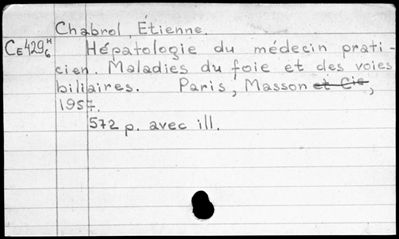 Chabrol, Étienne.
CE429H6 Hépatologie du médecin prati-
cien. Maladies du foie et des voies
biliaires. Paris, Masson et Cie,
1957.
572 p. avec ill.